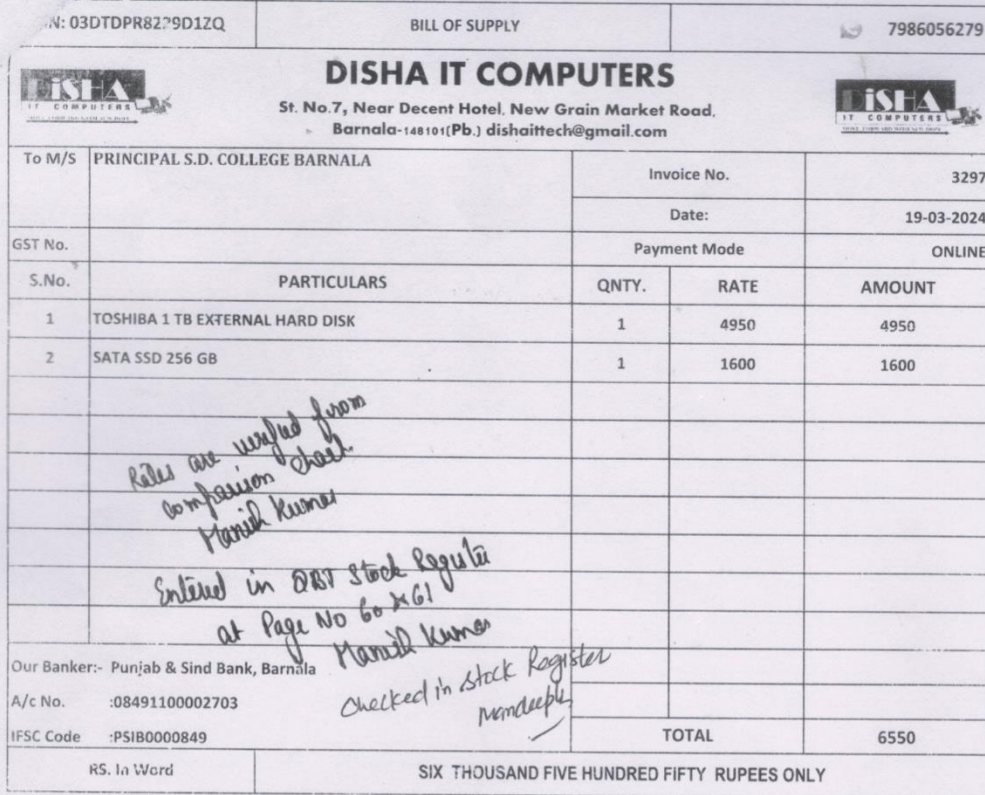 N: 03DTDPR82?9D1ZQ BILL OF SUPPLY 7986056279
DISHA IT COMPUTERS
DISHA IT COMPUTERS
St. No.7, Near Decent Hotel, New Grain Market Road,
Barnala-148101(Pb.) dishaittech@gmail.com
DISHA IT COMPUTERS
To M/S PRINCIPAL S.D. COLLEGE BARNALA
Invoice No. 3297
Date: 19-03-2024
GST No. Payment Mode ONLINE
S.No. PARTICULARS QNTY. RATE AMOUNT
1 TOSHIBA 1 TB EXTERNAL HARD DISK 1 4950 4950
2 SATA SSD 256 GB 1 1600 1600
Rates are verified from
comparison chart.
Manish Kumar
Entered in Stock Register
at Page No 60 & 61
Manish Kumar
Checked in Stock Register
Mandeep
Our Banker:- Punjab & Sind Bank, Barnala
A/c No. :08491100002703
IFSC Code :PSIB0000849
TOTAL 6550
RS. In Word SIX THOUSAND FIVE HUNDRED FIFTY RUPEES ONLY